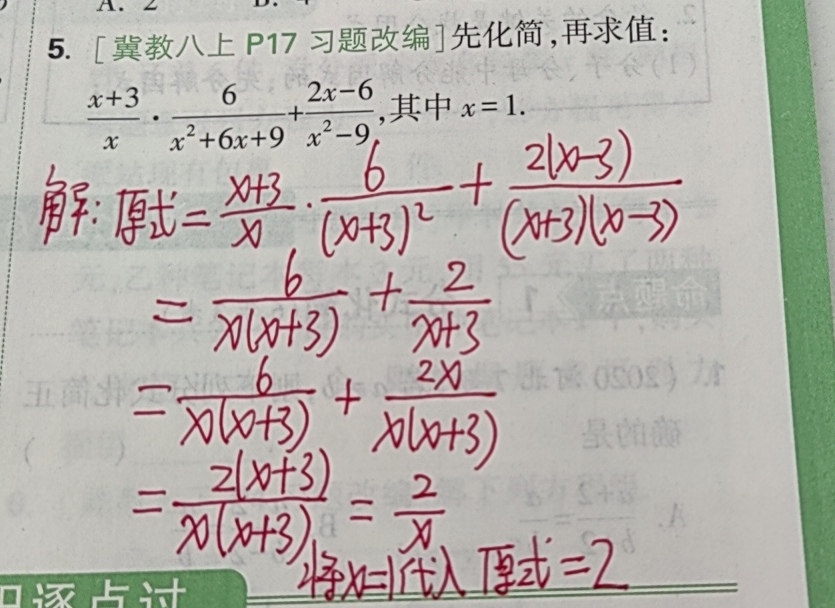 A. 2
5. [冀教八上 P17 习题改编]先化简,再求值:
(x+3)/x · 6/(x²+6x+9) + (2x-6)/(x²-9), 其中 x=1.
解: 原式 = (x+3)/x · 6/(x+3)² + 2(x-3)/((x+3)(x-3))
= 6/(x(x+3)) + 2/(x+3)
= 6/(x(x+3)) + 2x/(x(x+3))
= 2(x+3)/(x(x+3)) = 2/x
将x=1代入 原式=2
逐点过